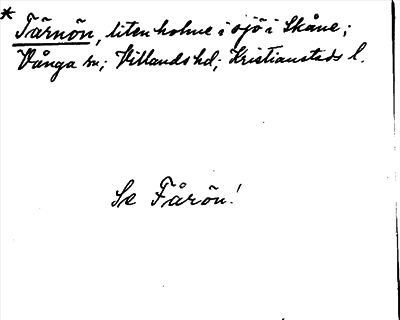 * Tärnön, liten holme i sjö i Skåne;
Vånga sn; Villands hd; Kristianstads l.
Se Fårön!